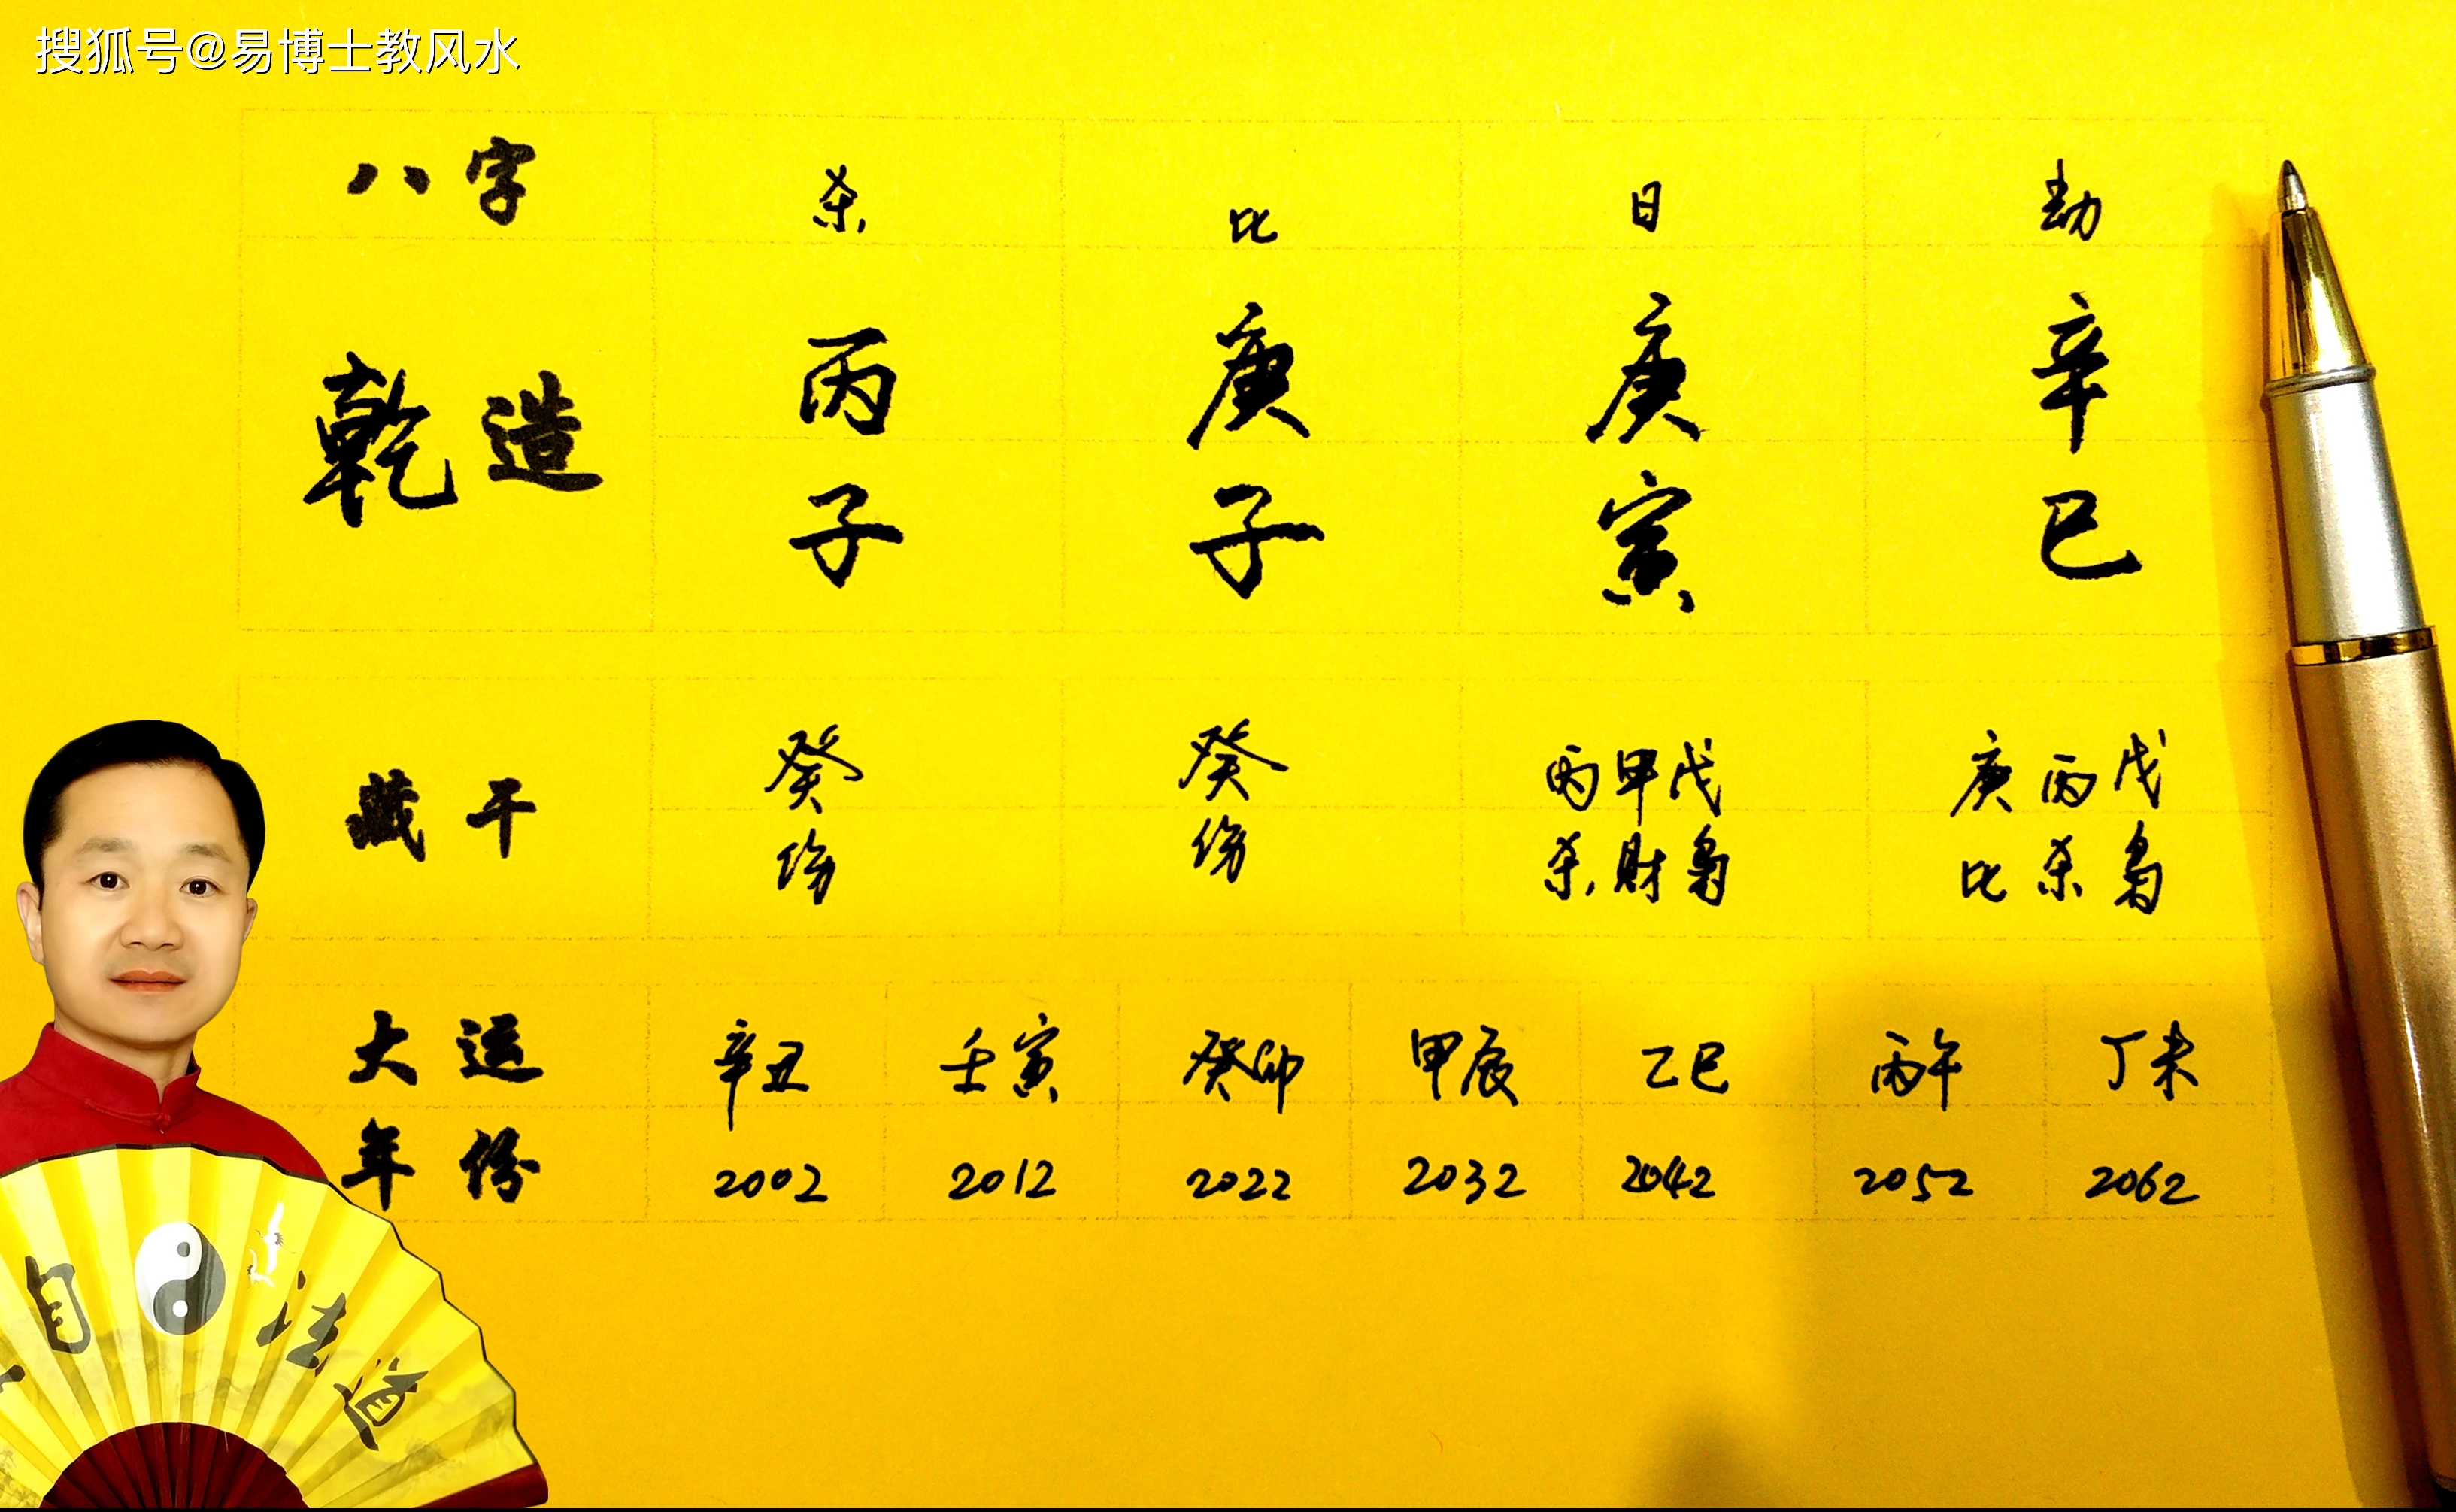 搜狐号@易博士教风水
八字 杀 比 日 劫
乾造 丙 庚 庚 辛
子 子 寅 巳
藏干 癸 癸 丙甲戊 庚丙戊
伤 伤 杀财枭 比杀枭
大运 辛丑 壬寅 癸卯 甲辰 乙巳 丙午 丁未
年份 2002 2012 2022 2032 2042 2052 2062
自法道